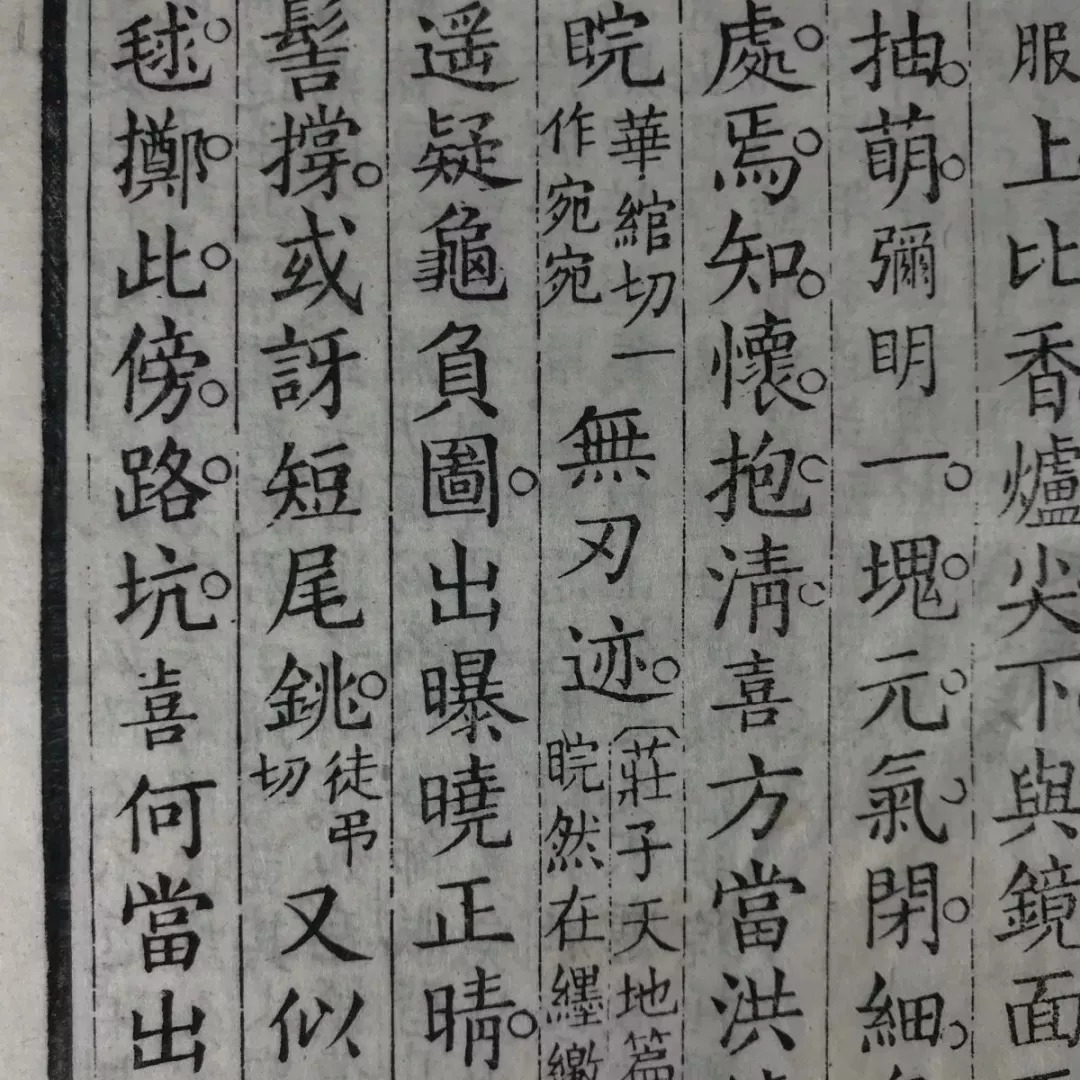 服上比香爐尖下與鏡面
抽萌彌明一塊元氣閉細
處焉知懷抱清喜方當洪
睆華綰切一
作宛宛無刃迹莊子天地篇
睆然在纆繳
遥疑龜負圖出曝曉正晴
髻撐或訝短尾銚徒弔
切又似
毬擲此傍路坑喜何當出